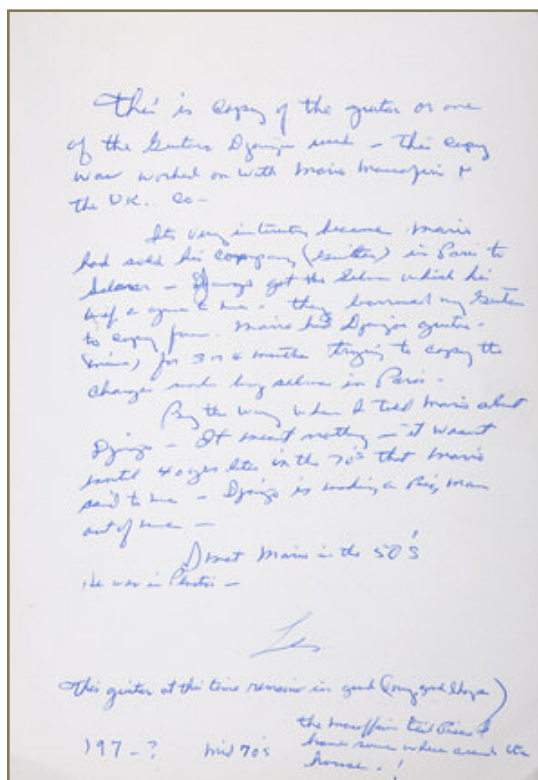 This is copy of the guitar or one
of the Guitars Django used – This copy
was worked on with Mario Maccaferri &
the U.K. Co –
Its very interesting because Mario
had sold his company (Guitar) in Paris to
Selmer – Django got the Selmer which his
wife gave me. They borrowed my Guitar
to copy from. Mario had Djangos guitar –
(mine) for 3 or 4 months trying to copy the
changes made by Selmer in Paris.
By the way when I told Mario about
Django – It meant nothing – it wasn't
until 40 yrs later in the 70's that Mario
said to me – Django is making a Big man
out of me –
I met Mario in the 50's
He was in Plastics –
Les
This guitar at this time remains in good (very good shape)
the Maccaferri Tail Piece I
have some where around the
house . !
197-? mid 70's